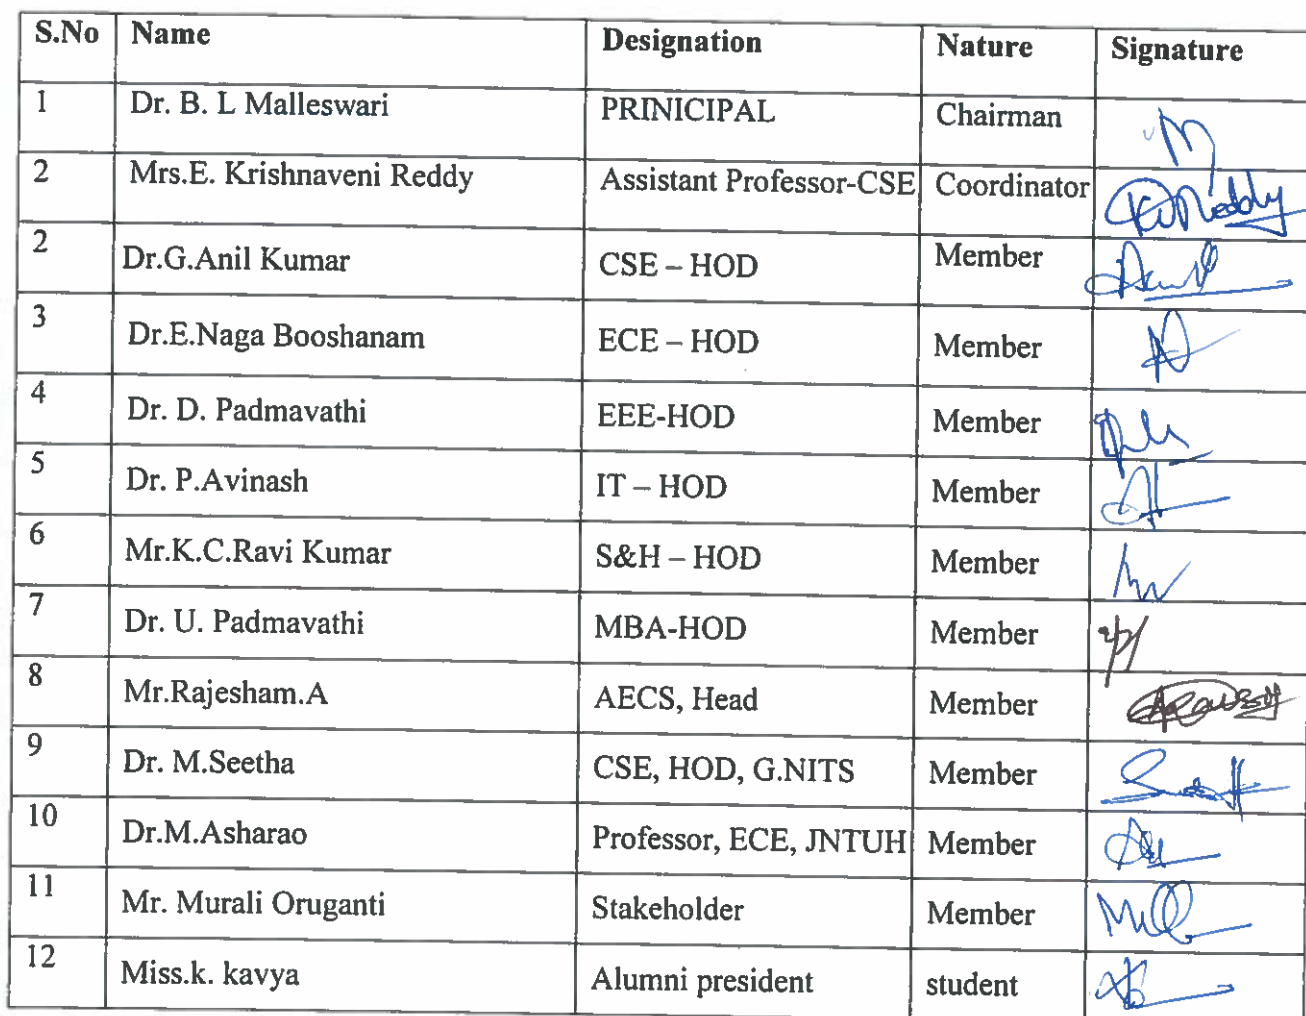 S.No Name Designation Nature Signature
1 Dr. B. L Malleswari PRINICIPAL Chairman
2 Mrs.E. Krishnaveni Reddy Assistant Professor-CSE Coordinator Reddy
2 Dr.G.Anil Kumar CSE – HOD Member
3 Dr.E.Naga Booshanam ECE – HOD Member
4 Dr. D. Padmavathi EEE-HOD Member
5 Dr. P.Avinash IT – HOD Member
6 Mr.K.C.Ravi Kumar S&H – HOD Member
7 Dr. U. Padmavathi MBA-HOD Member
8 Mr.Rajesham.A AECS, Head Member
9 Dr. M.Seetha CSE, HOD, G.NITS Member
10 Dr.M.Asharao Professor, ECE, JNTUH Member
11 Mr. Murali Oruganti Stakeholder Member
12 Miss.k. kavya Alumni president student